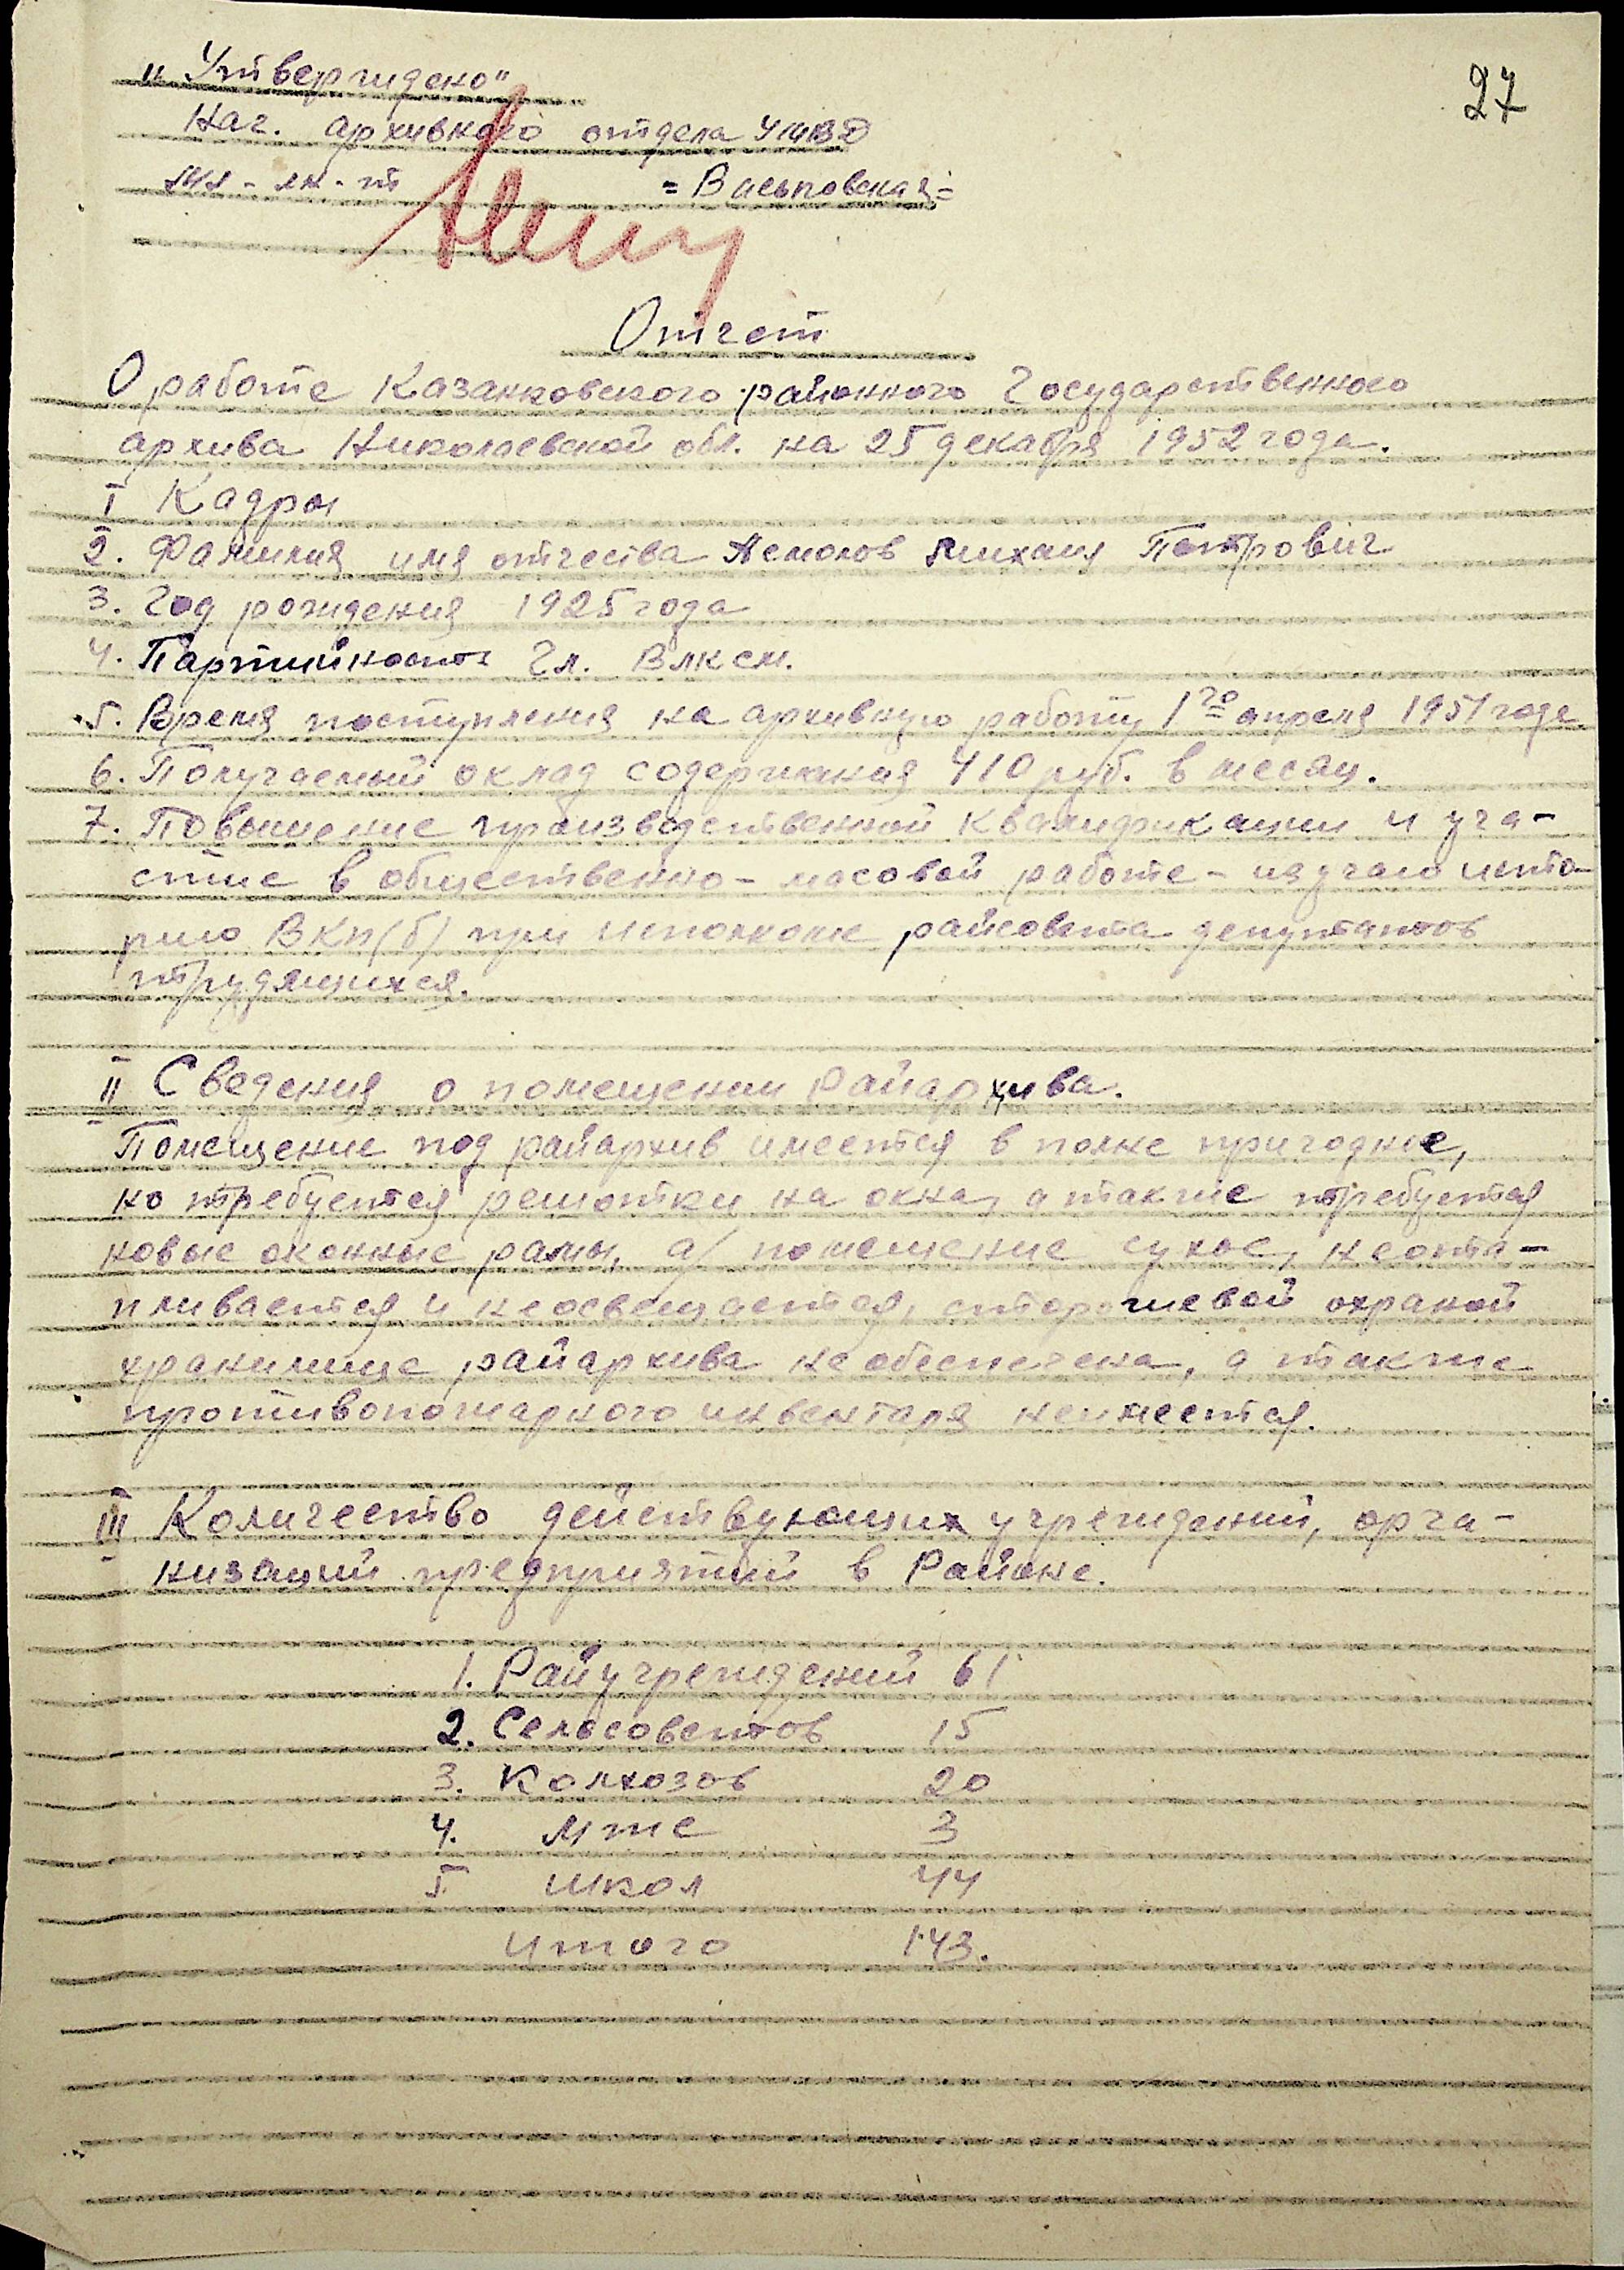 27
„Утверждено"
Нач. архивного отдела УМВД
мл-лн-т =Васьповская=
Отчет
О работе Казанковского районного Государственного
архива Николаевской обл. на 25 декабря 1952 года.
I Кадры
2. Фамилия имя отчества Асмолов Михаил Петровiч
3. Год рождения 1925 года
4. Партийность Чл. ВЛКСМ.
5. Время поступления на архивную работу 1го апреля 1951 года
6. Получаемый оклад содержания 410 руб. в месяц.
7. Повышение производственной квалификации и уча-
стие в общественно-масовой работе - изучаю исто-
рию ВКП(б) при исполкоме райсовета депутатов
трудящихся.
II Сведения о помещении Райархива.
Помещение под райархив имеется в полне пригодние,
но требуется решотки на окна, а также требуется
новые оконные рамы, а/ помещение сухое, неота-
пливается и неосвещается, сторожевой охраной
хранилище райархива не обеспечена, а также
противопожарного инвентаря неимеется.
III Количество действующих учреждений, орга-
низаций предприятий в Районе.
1. Райучреждений 61
2. Сельсоветов 15
3. Колхозов 20
4. МТС 3
5. Школ 44
Итого 143.